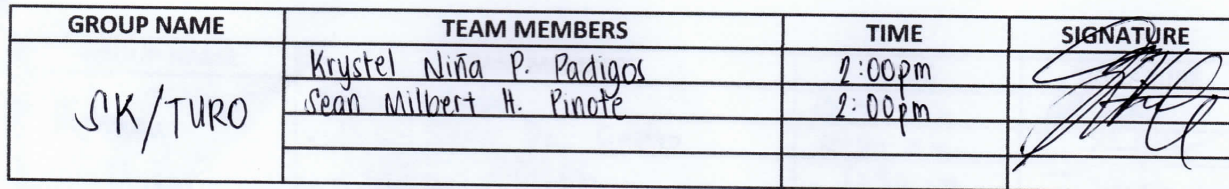 GROUP NAME TEAM MEMBERS TIME SIGNATURE
Krystel Niña P. Padigos 2:00pm
SK/TURO
Sean Milbert H. Pinote 2:00pm